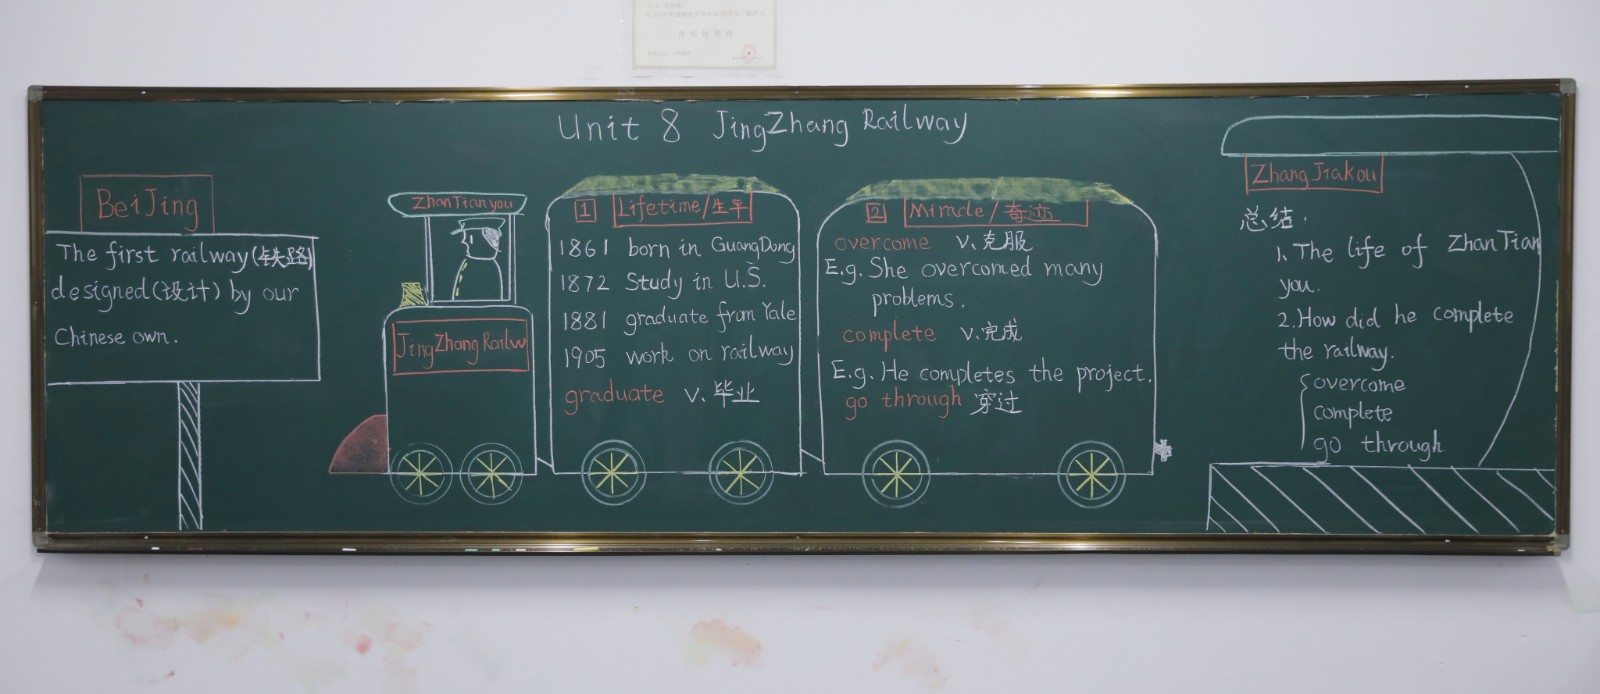 Unit 8 JingZhang Railway
BeiJing
The first railway(铁路)
designed(设计) by our
Chinese own.
ZhanTianyou
JingZhang Railw
1 Lifetime/生平
1861 born in GuangDong
1872 Study in U.S.
1881 graduate from Yale
1905 work on railway
graduate v.毕业
2 Miracle/奇迹
overcome v.克服
E.g. She overcomed many
problems.
complete v.完成
E.g. He completes the project.
go through 穿过
ZhangJiakou
总结.
1. The life of ZhanTian
you.
2. How did he complete
the railway.
overcome
complete
go through